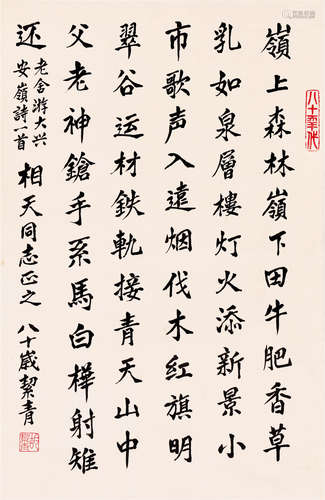 嶺上森林嶺下田牛肥香草
乳如泉層樓灯火添新景小
市歌声入遠烟伐木红旗明
翠谷运材鉄軌接青天山中
父老神鎗手系馬白樺射雉
还
老舍游大兴
安嶺詩一首
相天同志正之
八十歲絜青
八十年代